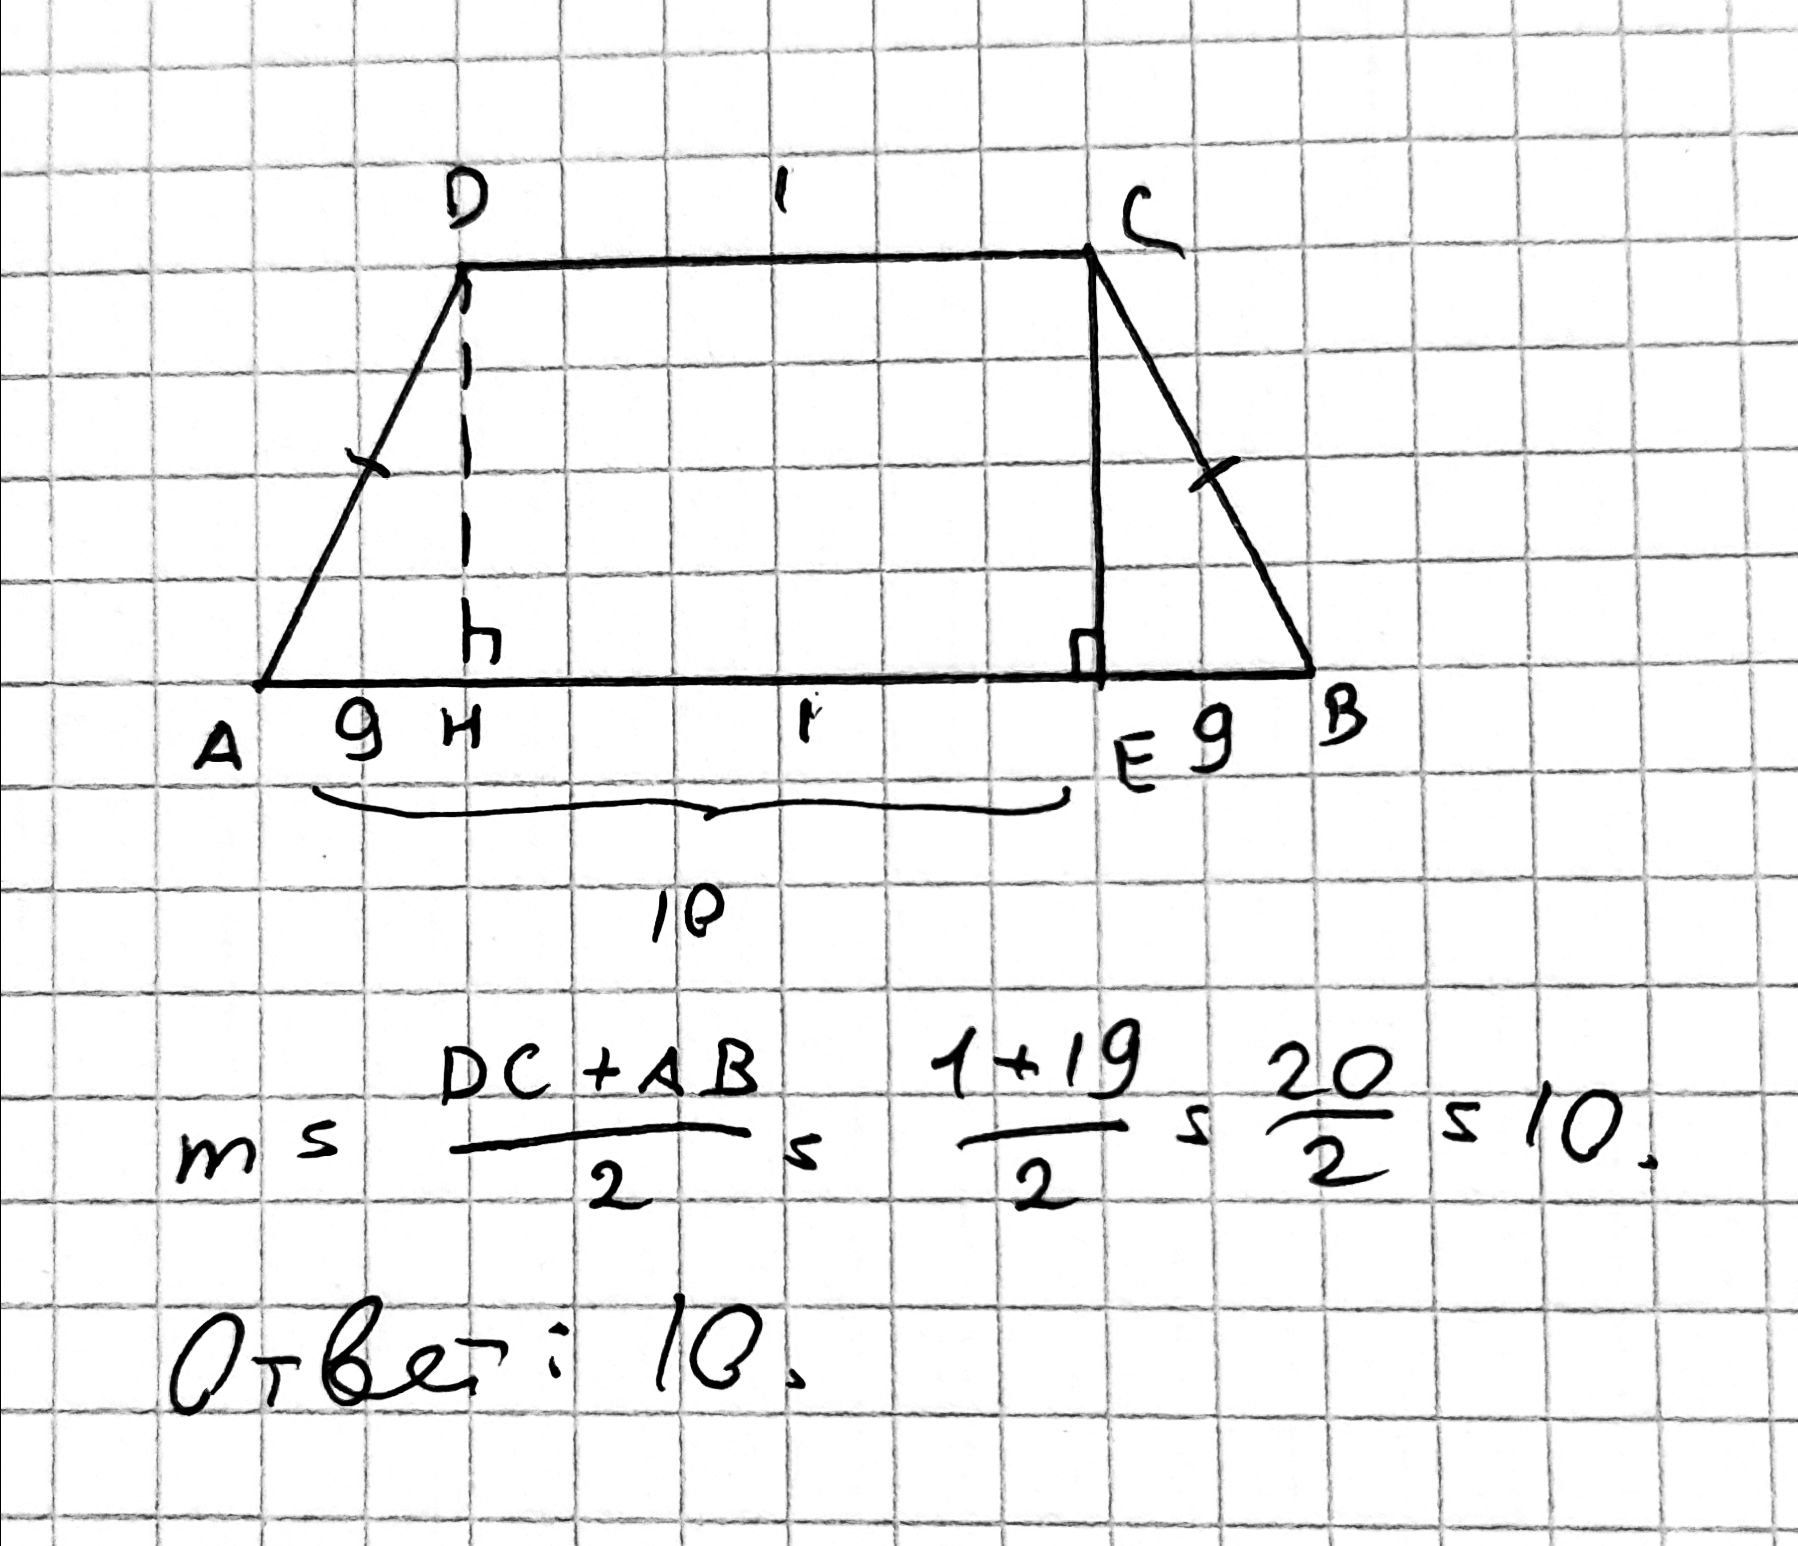 D 1 C
A 9 H 1 E 9 B
10
m = DC + AB / 2 = 1 + 19 / 2 = 20 / 2 = 10.
Ответ: 10.